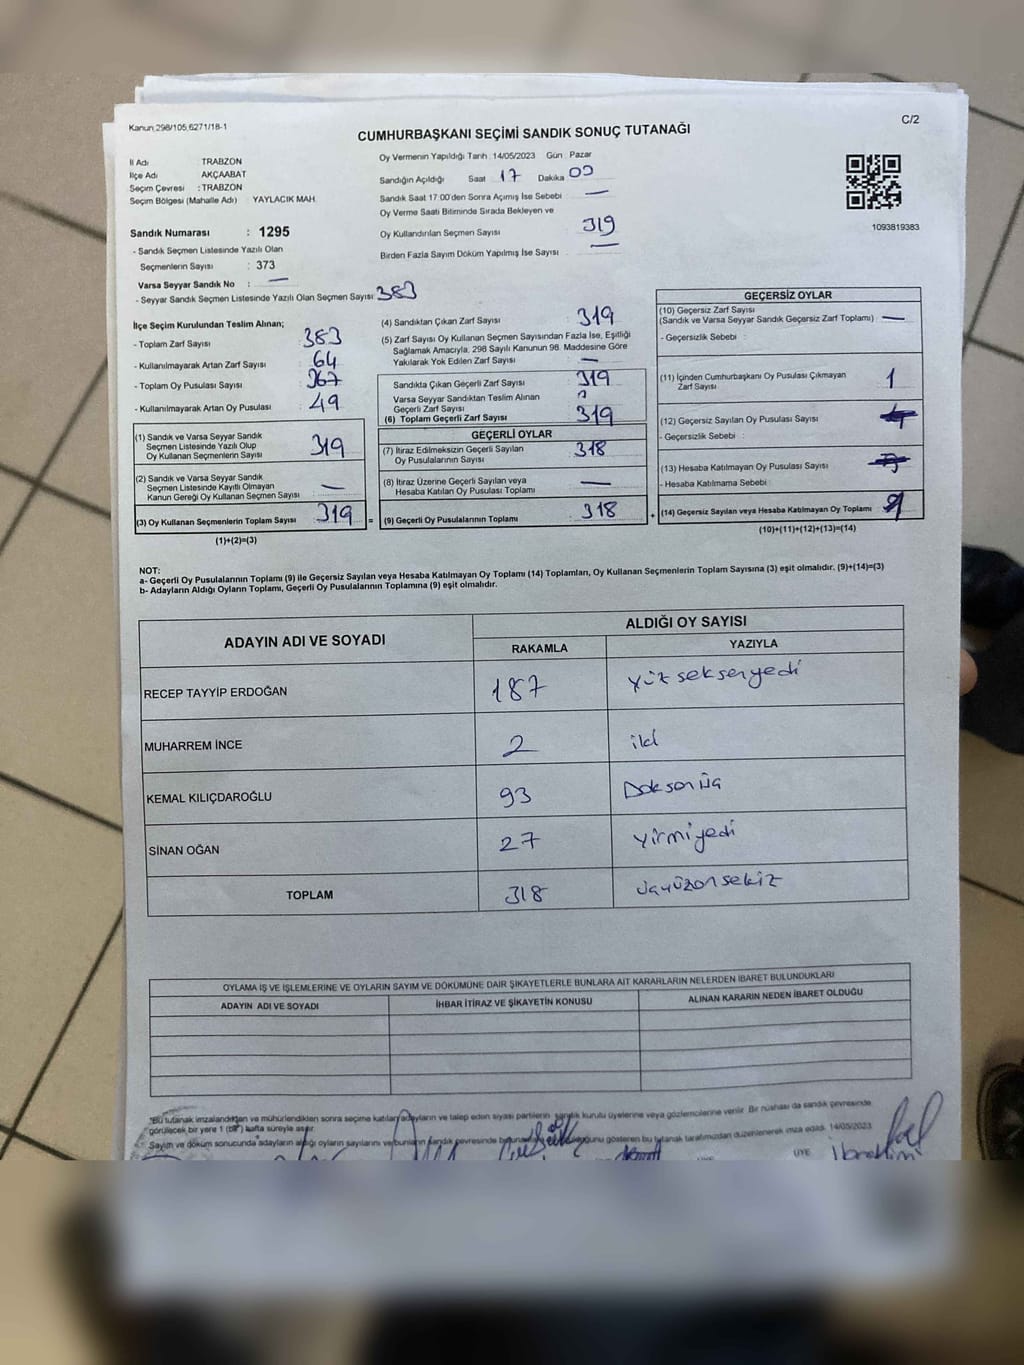 Kanun;298/105,6271/18-1
C/2
CUMHURBAŞKANI SEÇİMİ SANDIK SONUÇ TUTANAĞI
İl Adı TRABZON
İlçe Adı AKÇAABAT
Seçim Çevresi : TRABZON
Seçim Bölgesi (Mahalle Adı) YAYLACIK MAH.
Oy Vermenin Yapıldığı Tarih : 14/05/2023 Gün : Pazar
Sandığın Açıldığı Saat 17 Dakika 00
Sandık Saat 17:00'den Sonra Açımış İse Sebebi —
Oy Verme Saati Bitiminde Sırada Bekleyen ve
Oy Kullandırılan Seçmen Sayısı 319
Birden Fazla Sayım Döküm Yapılmış İse Sayısı —
1093819383
Sandık Numarası : 1295
- Sandık Seçmen Listesinde Yazılı Olan
Seçmenlerin Sayısı : 373
Varsa Seyyar Sandık No : —
- Seyyar Sandık Seçmen Listesinde Yazılı Olan Seçmen Sayısı: 383
İlçe Seçim Kurulundan Teslim Alınan;
- Toplam Zarf Sayısı 383
- Kullanılmayarak Artan Zarf Sayısı 64
- Toplam Oy Pusulası Sayısı 367
- Kullanılmayarak Artan Oy Pusulası 49
(1) Sandık ve Varsa Seyyar Sandık
Seçmen Listesinde Yazılı Olup
Oy Kullanan Seçmenlerin Sayısı 319
(2) Sandık ve Varsa Seyyar Sandık
Seçmen Listesinde Kayıtlı Olmayan
Kanun Gereği Oy Kullanan Seçmen Sayısı —
(3) Oy Kullanan Seçmenlerin Toplam Sayısı 319
(1)+(2)=(3)
(4) Sandıktan Çıkan Zarf Sayısı 319
(5) Zarf Sayısı Oy Kullanan Seçmen Sayısından Fazla İse, Eşitliği
Sağlamak Amacıyla, 298 Sayılı Kanunun 98. Maddesine Göre
Yakılarak Yok Edilen Zarf Sayısı —
Sandıkta Çıkan Geçerli Zarf Sayısı 319
Varsa Seyyar Sandıktan Teslim Alınan
Geçerli Zarf Sayısı
(6) Toplam Geçerli Zarf Sayısı 319
GEÇERLİ OYLAR
(7) İtiraz Edilmeksizin Geçerli Sayılan
Oy Pusulalarının Sayısı 318
(8) İtiraz Üzerine Geçerli Sayılan veya
Hesaba Katılan Oy Pusulası Toplamı —
= (9) Geçerli Oy Pusulalarının Toplamı 318
GEÇERSİZ OYLAR
(10) Geçersiz Zarf Sayısı
(Sandık ve Varsa Seyyar Sandık Geçersiz Zarf Toplamı) —
- Geçersizlik Sebebi :
(11) İçinden Cumhurbaşkanı Oy Pusulası Çıkmayan
Zarf Sayısı 1
(12) Geçersiz Sayılan Oy Pusulası Sayısı
- Geçersizlik Sebebi :
(13) Hesaba Katılmayan Oy Pusulası Sayısı
- Hesaba Katılmama Sebebi :
+ (14) Geçersiz Sayılan veya Hesaba Katılmayan Oy Toplamı
(10)+(11)+(12)+(13)=(14)
NOT:
a- Geçerli Oy Pusulalarının Toplamı (9) ile Geçersiz Sayılan veya Hesaba Katılmayan Oy Toplamı (14) Toplamları, Oy Kullanan Seçmenlerin Toplam Sayısına (3) eşit olmalıdır. (9)+(14)=(3)
b- Adayların Aldığı Oyların Toplamı, Geçerli Oy Pusulalarının Toplamına (9) eşit olmalıdır.
ADAYIN ADI VE SOYADI
ALDIĞI OY SAYISI
RAKAMLA YAZIYLA
RECEP TAYYİP ERDOĞAN 187 Yüzseksenyedi
MUHARREM İNCE 2 iki
KEMAL KILIÇDAROĞLU 93 Doksanüç
SİNAN OĞAN 27 Yirmiyedi
TOPLAM 318 üçyüzonsekiz
OYLAMA İŞ VE İŞLEMLERİNE VE OYLARIN SAYIM VE DÖKÜMÜNE DAİR ŞİKAYETLERLE BUNLARA AİT KARARLARIN NELERDEN İBARET BULUNDUKLARI
ADAYIN ADI VE SOYADI İHBAR İTİRAZ VE ŞİKAYETİN KONUSU ALINAN KARARIN NEDEN İBARET OLDUĞU
*Bu tutanak imzalandıktan ve mühürlendikten sonra seçime katılan adayların ve talep eden siyasi partilerin sandık kurulu üyelerine veya gözlemcilerine verilir. Bir nüshası da sandık çevresinde
görülecek bir yere 1 (bir) hafta süreyle asılır.
Sayım ve döküm sonucunda adayların aldığı oyların sayılarını ve bunların sandık çevresinde gösteren bu tutanak tarafımızdan düzenlenerek imza edildi. 14/05/2023
ÜYE
İbrahim